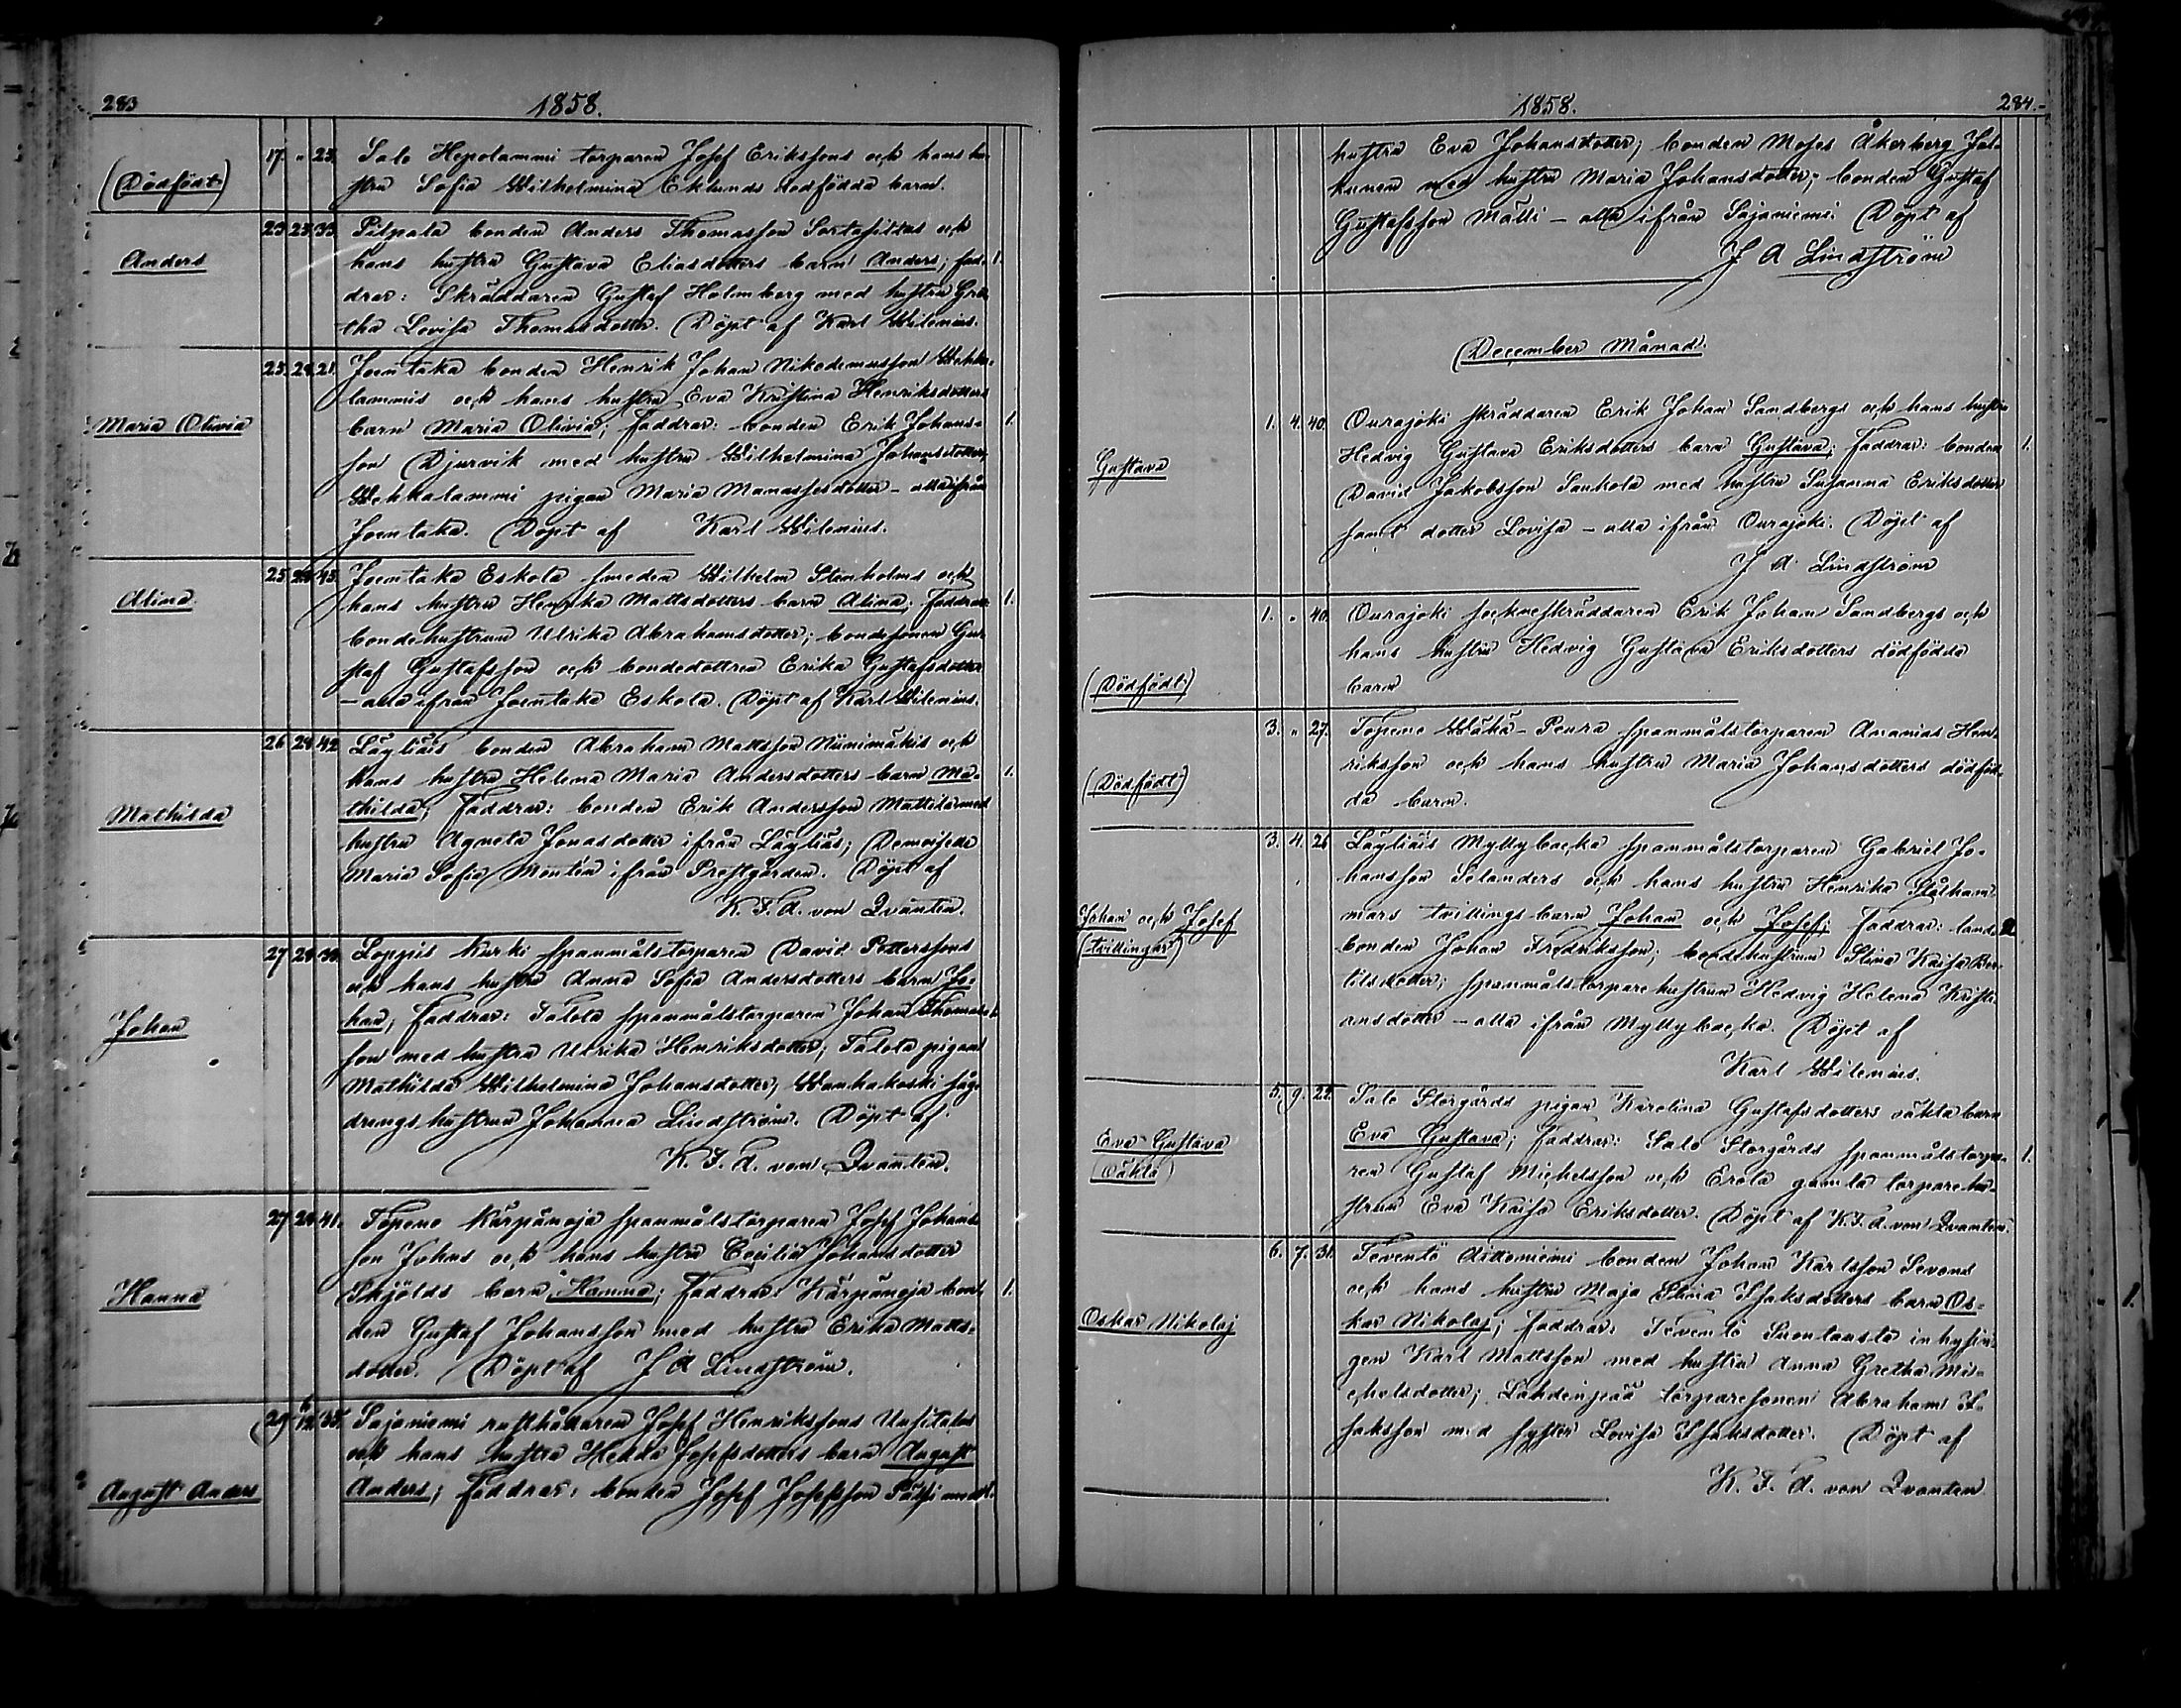 283
1858.
(Dödfödt)
17. " 23. Salo Hepolammi torparen Josef Erikssons och hans hu-
stru Sofia Wilhelmina Eklunds dödfödda barn.
Anders
23. 23. 33. Pilpala bonden Anders Thomasson Sortasillas och
hans hustru Gustava Eliasdotters barn Anders; fad- 1.
drar: Skräddaren Gustaf Holmberg med hustru Gre-
tha Lovisa Thomasdotter. Döpt af Karl Wilenius.
Maria Olivia
23. 24. 21. Joentaka bonden Henrik Johan Nikodemusson Wehka-
lammis och hans hustru Eva Kristina Henriksdotters
barn Maria Olivia; Faddrar: bonden Erik Johans- 1.
son Djurvik med hustru Wilhelmina Johansdotter,
Wehkalammi pigan Maria Manassesdotter – alla ifrån
Joentaka. Döpt af Karl Wilenius.
Alina
25. 28. 43. Joentaka Eskola smeden Wilhelm Stenholms och
hans hustru Henrika Mattsdotters barn Alina; Faddrar: 1.
bondehustrun Ulrika Abrahamsdotter; bondesonen Gu-
staf Gustafsson och bondedottren Erika Gustafsdotter
– alla ifrån Joentaka Eskola. Döpt af Karl Wilenius.
Mathilda
26 29. 42. Läyliäis bonden Abraham Mattsson Niinimäkis och
hans hustru Helena Maria Andersdotters barn Ma- 1.
thilda; Faddrar: bonden Erik Andersson Mattila med
hustru Agneta Jonasdotter ifrån Läyliäs; Demoiselle
Maria Sofia Montén ifrån Prestgården. Döpt af
K. F. A. von Qvanten.
Johan
27 29. Loppis Kurki spanmålstorparen David Petterssons
och hans hustru Anna Sofia Andersdotters barn Jo-
han; Faddrar: Talola spanmålstorparen Johan Thomas-
son med hustru Ulrika Henriksdotter; Talola pigan
Mathilda Wilhelmina Johansdotter; Wanhakoski såg-
drengshustrun Johanna Lindström. Döpt af
K. F. A. von Qvanten.
Hanna
27 28. 41. Topeno Kärpänoja spanmålstorparen Josef Johans-
son Johns och hans hustru Cecilia Johansdotter
Skjölds barn Hanna; Faddrar: Kärpänoja bon- 1.
den Gustaf Johansson med hustru Erika Matts-
dotter. Döpt af J A Lindström.
August Anders
29 6/12. 35. Sajaniemi rusthållaren Josef Henrikssons Uusitalos
och hans hustru Hedda Josefsdotters barn August
Anders; Faddrar: bonden Josef Josefsson Pätsi med 1.
1858.
284.
hustru Eva Johansdotter; bonden Moses Åkerberg Jos-
kanen med hustru Maria Johansdotter; bonden Gustaf
Gustafsson Mälli – alla ifrån Sajaniemi. Döpt af
J A Lindström
December Månad.
Gustava
1. 4. 40. Ourajoki skräddaren Erik Johan Sandbergs och hans hustru
Hedvig Gustava Eriksdotters barn Gustava; Faddrar: bonden 1.
David Jakobsson Sankola med hustru Susanna Eriksdotter
samt dotter Lovisa – alla ifrån Ourajoki. Döpt af
J A Lindström
(Dödfödt)
1. " 40. Ourajoki sockneskräddaren Erik Johan Sandbergs och
hans hustru Hedvig Gustava Eriksdotters dödfödda
barn
(Dödfödt)
3. " 27. Topeno Wähä-Peura spanmålstorparen Ananias Hen-
riksson och hans hustru Maria Johansdotters dödföd-
da barn.
Johan och Josef
(tvillingar)
3. 4. 26 Läyliäis Myllybacka spanmålstorparen Gabriel Jo-
hansson Selanders och hans hustru Henrika Stålham-
mars tvillingsbarn Johan och Josef; Faddrar: land- 2
bonden Johan Fredriksson; bondehustrun Stina Kaisa Ber-
tilsdotter; spanmålstorparehustrun Hedvig Helena Kristi-
ansdotter – alla ifrån Myllybacka. Döpt af
Karl Wilenius.
Eva Gustava
(oäkta)
5. 9. 22. Salo Storgårds pigan Karolina Gustafsdotters oäkta barn
Eva Gustava; Faddrar: Salo Storgårds spanmålstorpa- 1.
ren Gustaf Michelsson och Erola gamla torparehu-
strun Eva Kaisa Eriksdotter. Döpt af K. F. A. von Qvanten.
Oskar Nikolaj
6. 7. 31. Teventö Aittoniemi bonden Johan Karlsson Sevons
och hans hustru Maja Stina Isaksdotters barn Os-
kar Nikolaj; Faddrar: Teventö Suontausta inhysin- 1.
gen Karl Mattsson med hustru Anna Gretha Mi-
chelsdotter; Lahdenpää torparesonen Abraham I-
saksson med syster Lovisa Isaksdotter. Döpt af
K. F. A. von Qvanten